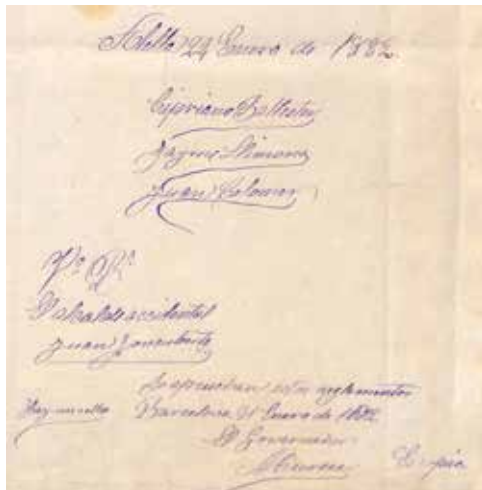 24 Enero de 1882.
Cipriano Ballester
Jayme
Juan Colomer
Vº Bº
El alcalde accidental
Juan
Se aprueban estos reglamentos
Hay un sello Barcelona 31 Enero de 1882
El Governador
Es copia